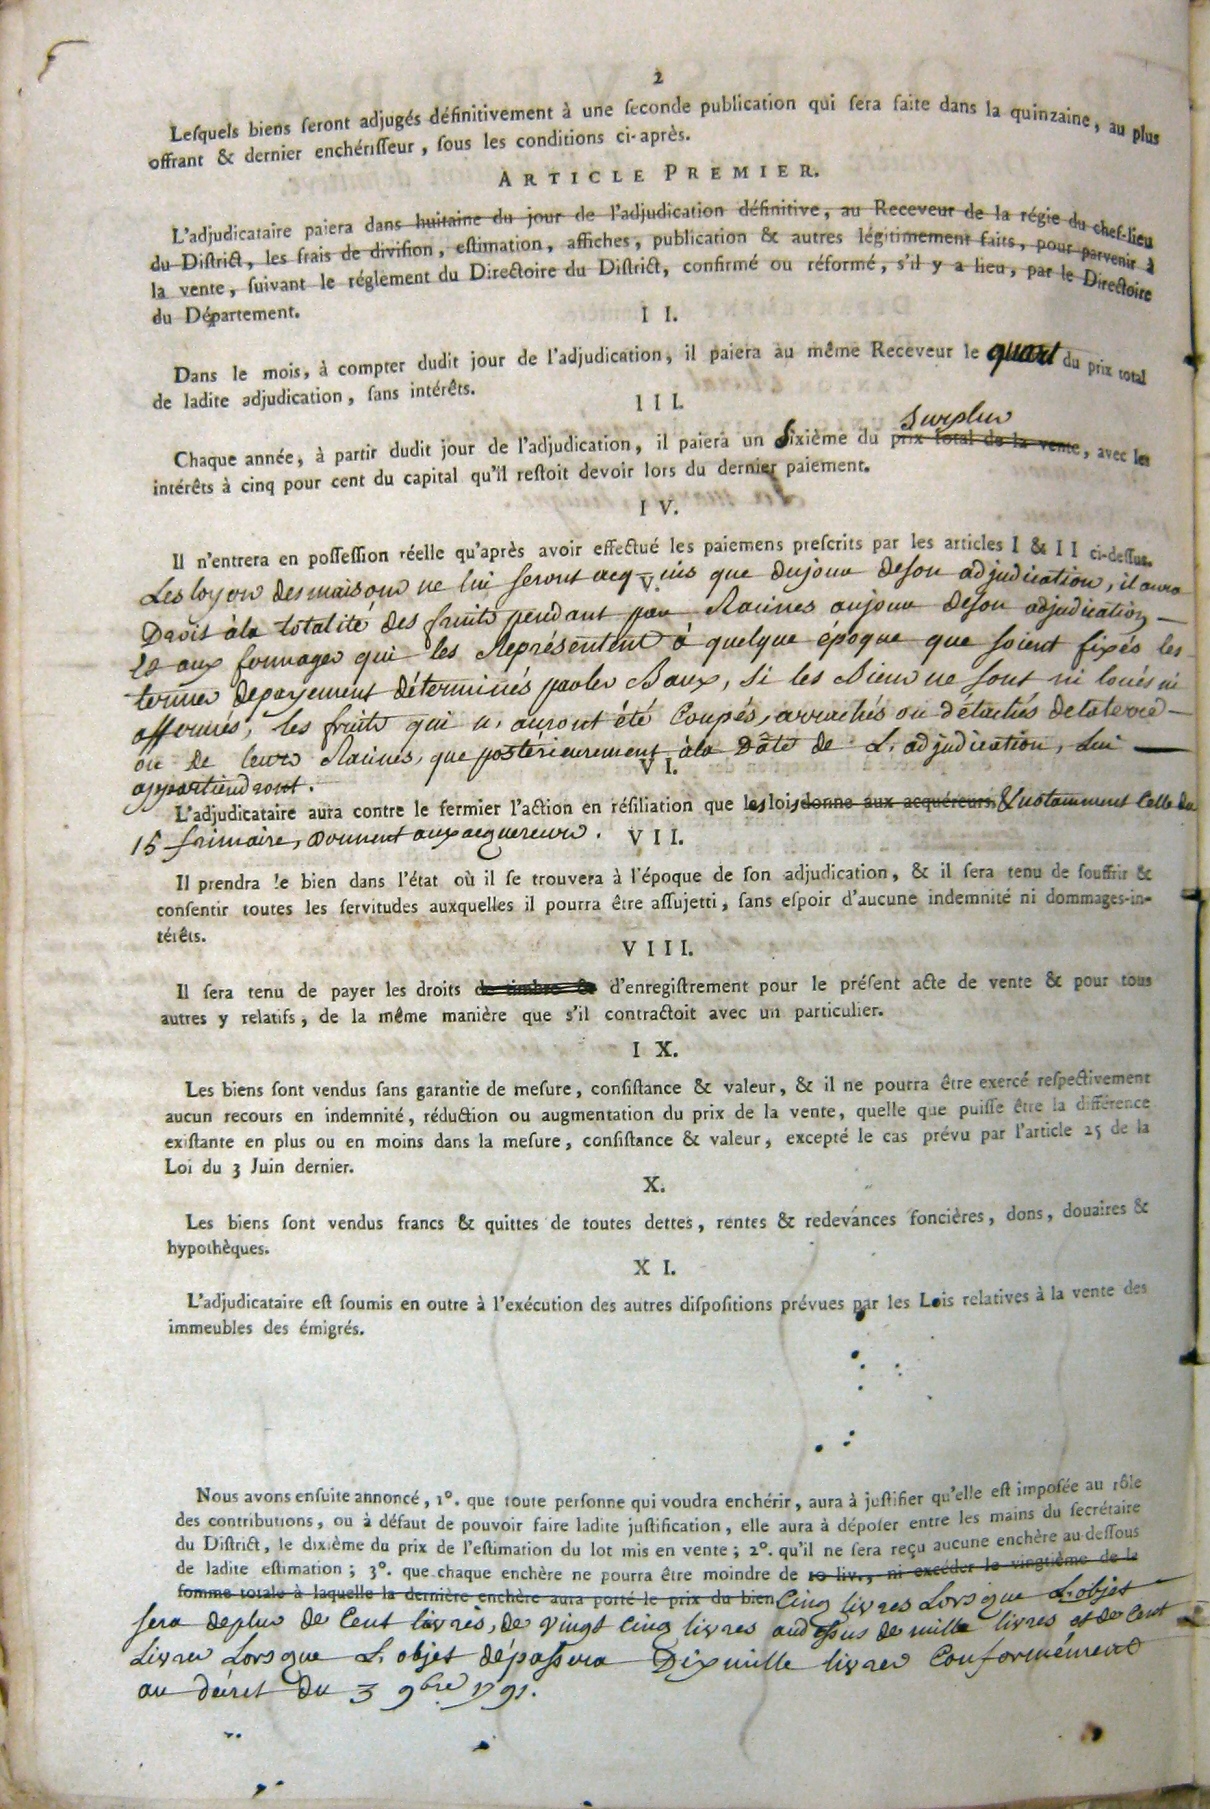 2
Lesquels biens seront adjugés définitivement à une seconde publication qui sera faite dans la quinzaine, au plus
offrant & dernier enchérisseur, sous les conditions ci-après.
ARTICLE PREMIER.
L'adjudicataire paiera dans huitaine du jour de l'adjudication définitive, au Receveur de la régie du chef-lieu
du District, les frais de division, estimation, affiches, publication & autres légitimement faits, pour parvenir à
la vente, suivant le réglement du Directoire du District, confirmé ou réformé, s'il y a lieu, par le Directoire
du Département.
II.
Dans le mois, à compter dudit jour de l'adjudication, il paiera au même Receveur le quart du prix total
de ladite adjudication, sans intérêts.
III.
surplus
Chaque année, à partir dudit jour de l'adjudication, il paiera un sixième du prix total de la vente, avec les
intérêts à cinq pour cent du capital qu'il restoit devoir lors du dernier paiement.
IV.
Il n'entrera en possession réelle qu'après avoir effectué les paiemens prescrits par les articles I & II ci-dessus.
V.
Les loyers des maisons ne lui seront acquis que du jour de son adjudication, il aura
Droit à la totalité des fruits pendant par Racines au jour de son adjudication
et aux fermages qui les Représentent à quelque époque que soient fixés les
termes de payement déterminés par les Baux, si les Biens ne sont ni loués ni
affermés, les fruits qui n'auront été Coupés, arrachés ou détachés de la terre
ou de leurs Racines, que postérieurement à la Date de L'adjudication, Lui
appartiendront.
VI.
L'adjudicataire aura contre le fermier l'action en résiliation que les lois donne aux acquéreurs & notamment celle du
15 frimaire, donnent aux acquereurs.
VII.
Il prendra le bien dans l'état où il se trouvera à l'époque de son adjudication, & il sera tenu de souffrir &
consentir toutes les servitudes auxquelles il pourra être assujetti, sans espoir d'aucune indemnité ni dommages-in-
térêts.
VIII.
Il sera tenu de payer les droits de timbre & d'enregistrement pour le présent acte de vente & pour tous
autres y relatifs, de la même manière que s'il contractoit avec un particulier.
IX.
Les biens sont vendus sans garantie de mesure, consistance & valeur, & il ne pourra être exercé respectivement
aucun recours en indemnité, réduction ou augmentation du prix de la vente, quelle que puisse être la différence
existante en plus ou en moins dans la mesure, consistance & valeur, excepté le cas prévu par l'article 25 de la
Loi du 3 Juin dernier.
X.
Les biens sont vendus francs & quittes de toutes dettes, rentes & redevances foncières, dons, douaires &
hypothèques.
XI.
L'adjudicataire est soumis en outre à l'exécution des autres dispositions prévues par les Lois relatives à la vente des
immeubles des émigrés.
Nous avons ensuite annoncé, 1°. que toute personne qui voudra enchérir, aura à justifier qu'elle est imposée au rôle
des contributions, ou à défaut de pouvoir faire ladite justification, elle aura à déposer entre les mains du secrétaire
du District, le dixième du prix de l'estimation du lot mis en vente ; 2°. qu'il ne sera reçu aucune enchère au-dessous
de ladite estimation ; 3°. que chaque enchère ne pourra être moindre de 10 liv., ni excéder le vingtième de la
somme totale à laquelle la dernière enchère aura porté le prix du bien Cinq livres Lorsque L'objet
sera de plus de Cent livres, de vingt cinq livres au dessus de mille livres et de Cent
Livres Lorsque L'objet dépassera Dix mille livres Conformément
au décret du 3 9bre 1791.